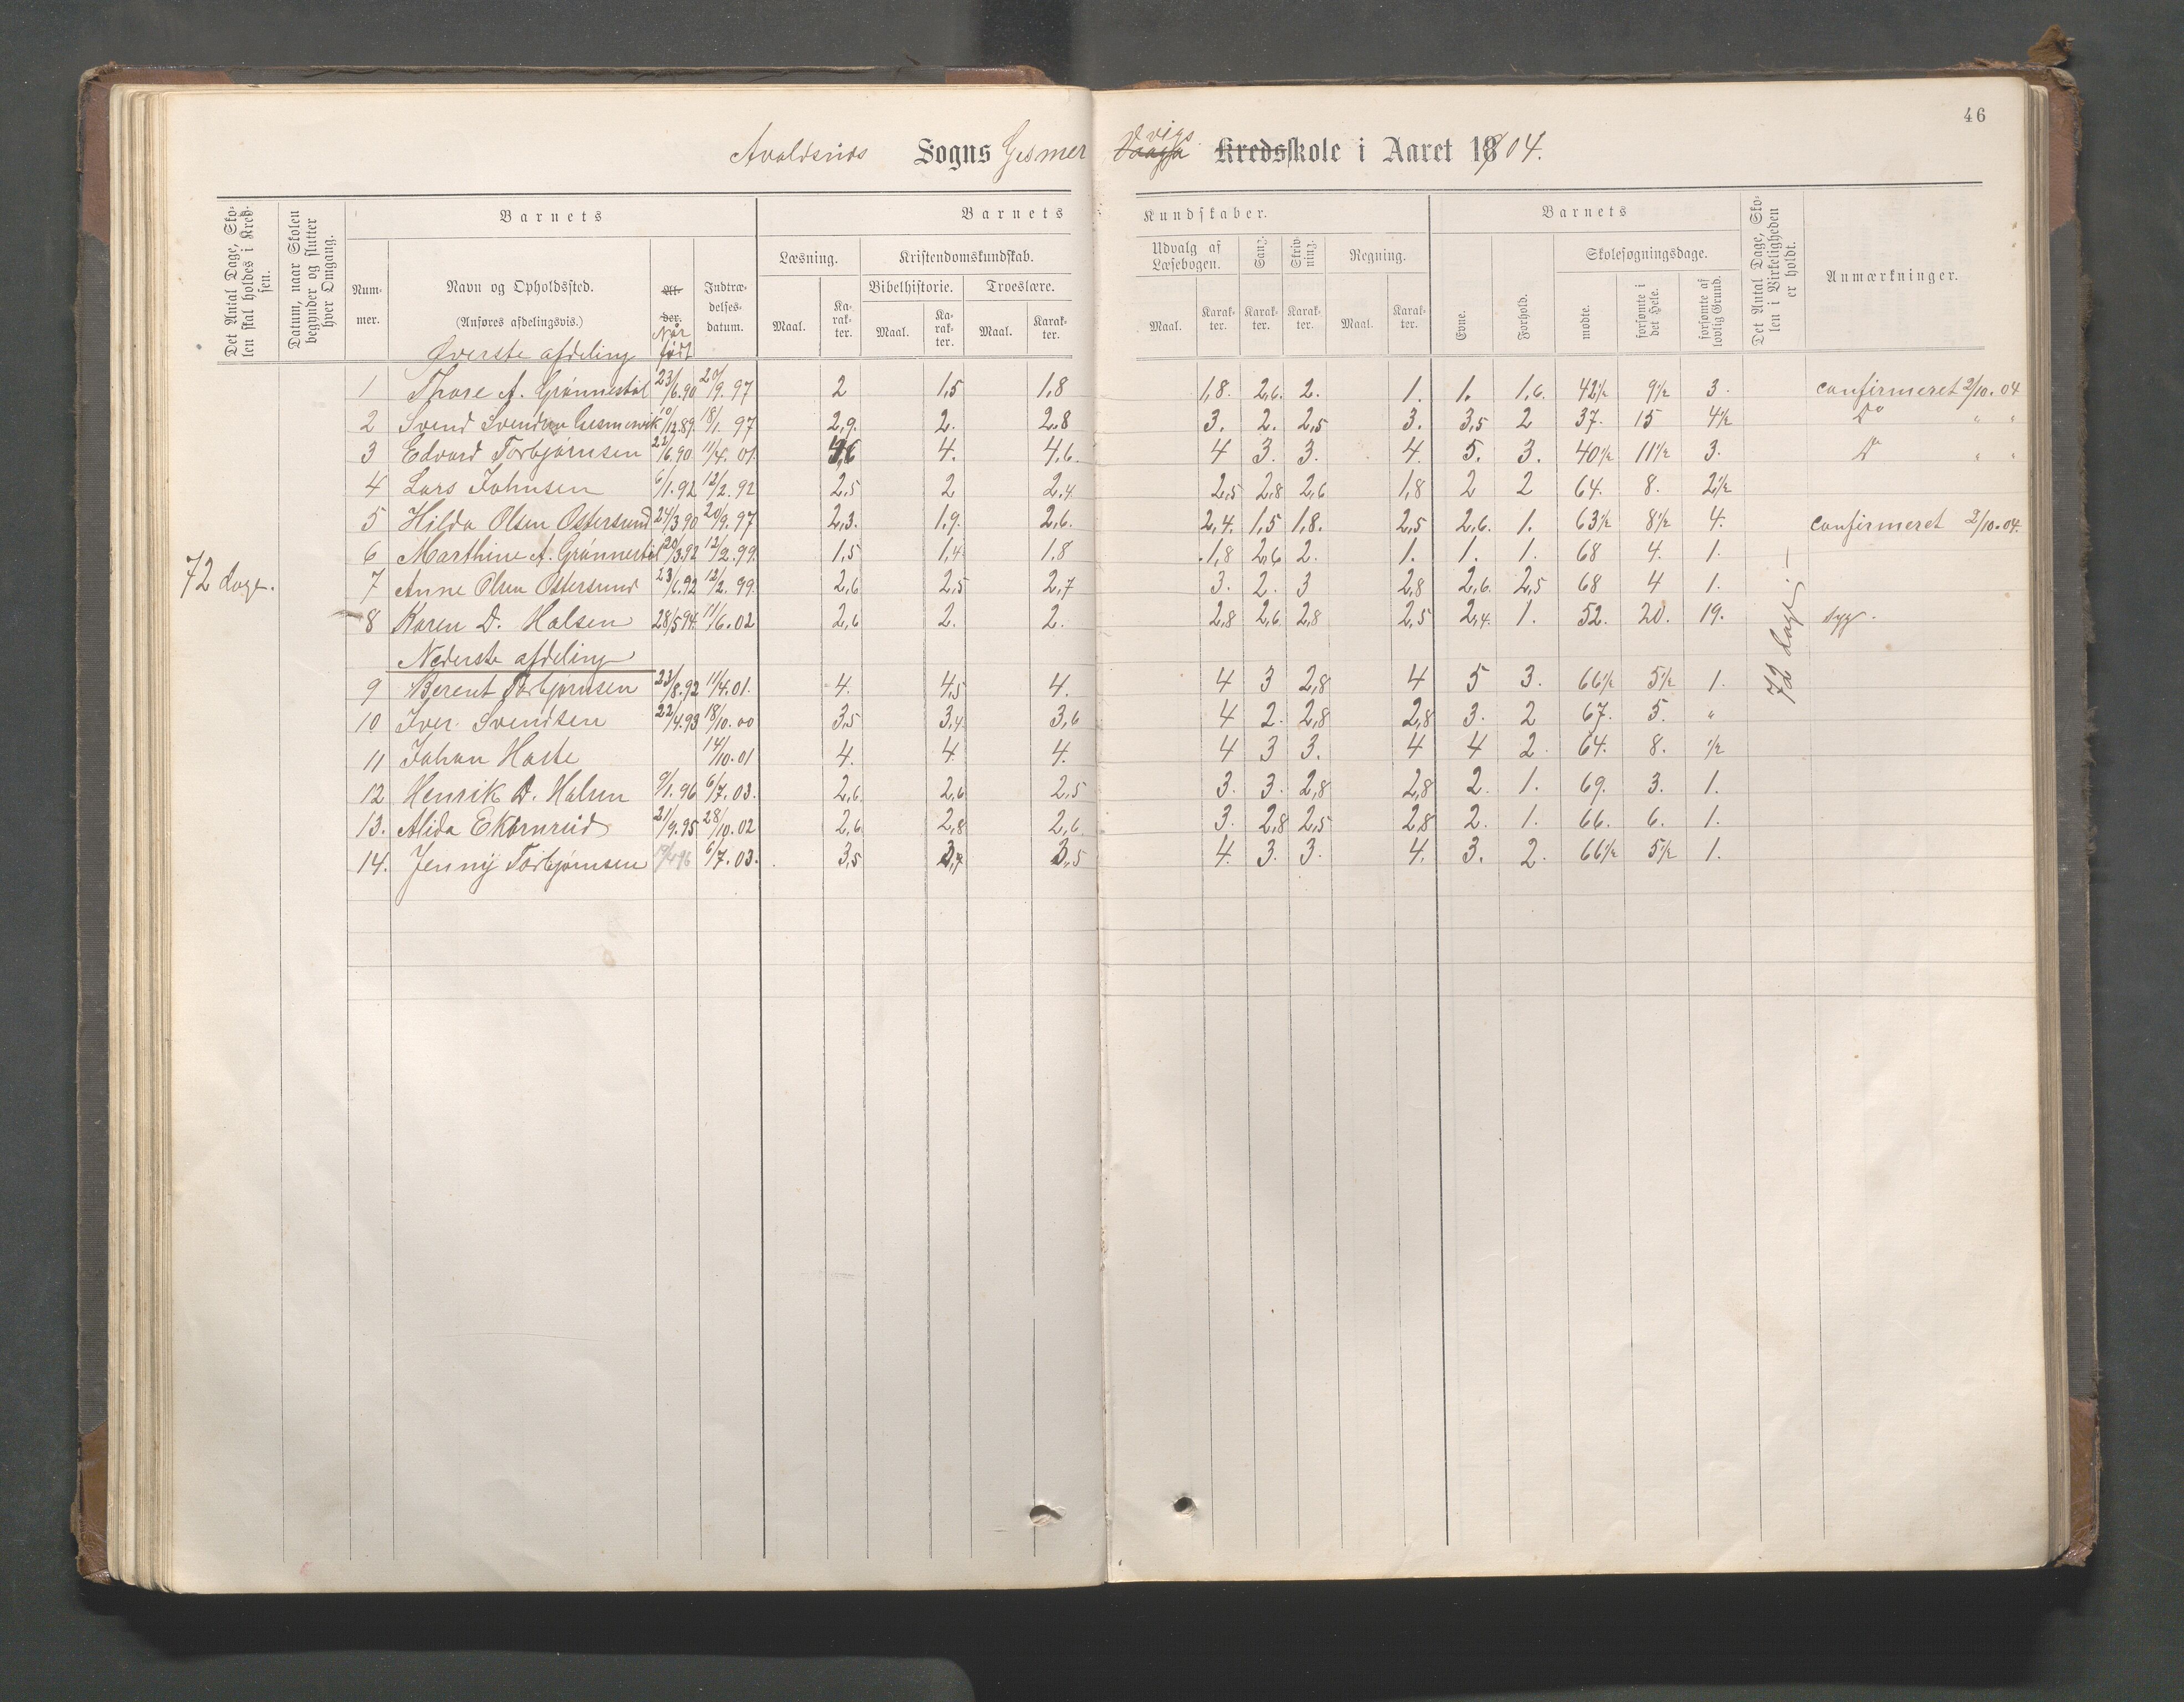 46
Avaldsnæs Sogns Gismervigs Kredsskole i Aaret 1904.
Det Antal Dage, Skolen skal holdes i Kredsen.
Datum, naar Skolen begynder og slutter hver Omgang.
Barnets
Nummer.
Navn og Opholdssted.
(Anføres afdelingsvis.)
Alder.
Når født
Indtrædelsesdatum.
Barnets Kundskaber.
Læsning.
Maal.
Karakter.
Kristendomskundskab.
Bibelhistorie.
Maal.
Karakter.
Troeslære.
Maal.
Karakter.
Udvalg af Læsebogen.
Maal.
Karakter.
Sang.
Karakter.
Skrivning.
Karakter.
Regning.
Maal.
Karakter.
Barnets
Evne.
Forhold.
Skolesøgningsdage.
mødte.
forsømte i det Hele.
forsømte af lovlig Grund.
Det Antal Dage, Skolen i Virkeligheden er holdt.
Anmærkninger.
Øverste afdeling
1 Thore A. Grønnestøl 23/6.90 20/9.97 2 1,5 1,8 1,8. 2,6. 2. 1. 1. 1,6. 42½ 9½ 3. confirmeret 2/10.04
2 Svend Svendsen Gismervik 10/12.89 18/1.97 2,9. 2. 2,8 3. 2. 2,5 3. 3,5 2 37. 15 4½ Do " "
3 Edvard Torbjørnsen 22/6.90 11/4.01 4,6 4. 4,6. 4 3. 3. 4. 5. 3. 40½ 11½ 3. Do " "
4 Lars Johnsen 6/1.92 12/2.92 2,5 2 2,4 2,5 2,8 2,6 1,8 2 2 64. 8. 2½
5 Hilda Olsen Østersund 24/3.90 20/9.97 2,3. 1,9. 2,6. 2,4. 1,5 1,8. 2,5 2,6. 1. 63½ 8½ 4. confirmeret 2/10.04.
6 Marthine A. Grønnestøl 20/3.92 12/2.99. 1,5 1,4 1,8 1,8 2,6 2. 1. 1. 1. 68 4. 1.
72 dage.
7 Anne Olsen Østersund 23/6.92 12/2.99. 2,6 2,5 2,7 3. 2. 3 2,8 2,6. 2,5 68 4 1.
8 Karen D. Halsen 28/5.94. 11/6.02 2,6 2. 2. 2,8 2,6 2,8 2,5 2,4. 1. 52. 20. 19. syg.
72 dage.
Nederste afdeling
9 Berent Torbjørnsen 23/8.92 11/4.01. 4. 4,5 4. 4 3 2,8 4 5 3. 66½ 5½ 1.
10 Iver Svendsen 22/4.93 18/10.00 3,5 3,4 3,6 4 2. 2,8 2,8 3. 2 67. 5. "
11 Johan Haste 14/10.01 4. 4. 4. 4 3 3. 4 4 2. 64. 8. ½
12 Henrik D. Halsen 9/1.96 6/7.03. 2,6 2,6 2,5 3. 3. 2,8 2,8 2. 1. 69. 3. 1.
13. Alida Ekornrud 21/9.95 28/10.02 2,6 2,8 2,6 3. 2,8 2,5 2,8 2. 1. 66. 6. 1.
14. Jenny Torbjørnsen 6/7.03. 3,5 3,4 3,5 4. 3. 3. 4. 3. 2. 66½ 5½ 1.